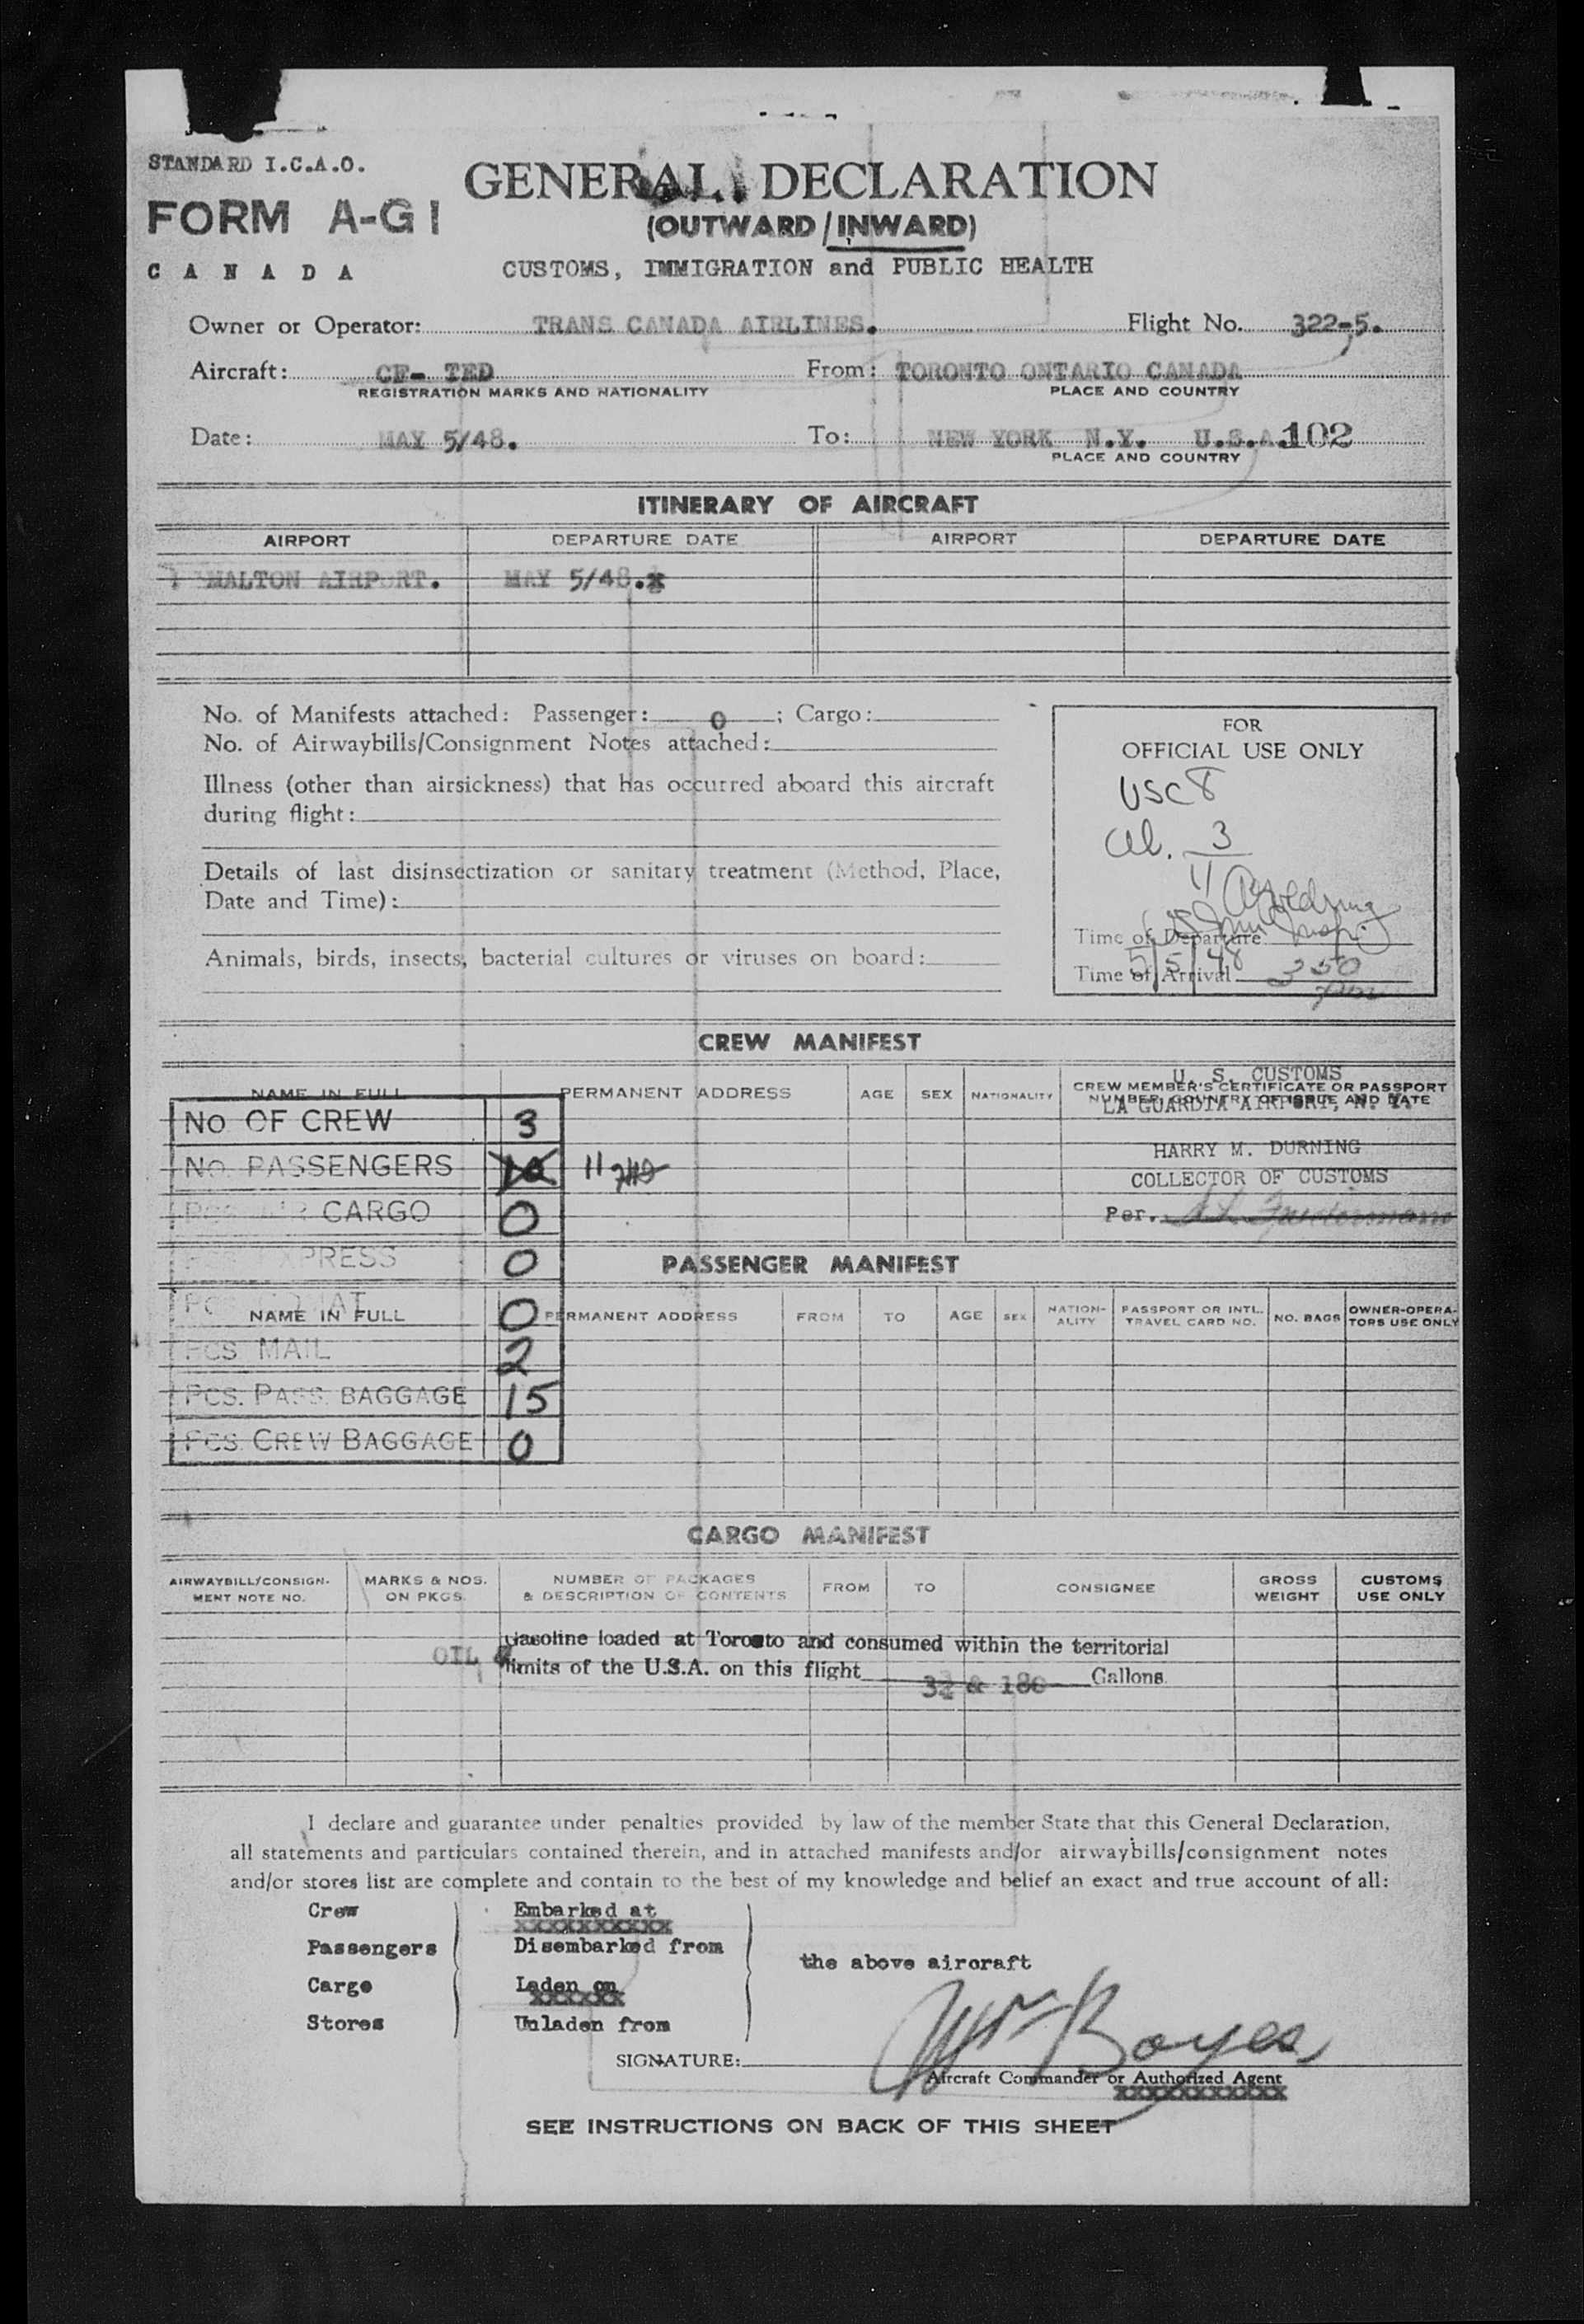 STANDARD I.C.A.O.
GENERAL DECLARATION
FORM A-G1
(OUTWARD/INWARD)
CANADA
CUSTOMS, IMMIGRATION and PUBLIC HEALTH
Owner or Operator: TRANS CANADA AIRLINES. Flight No. 322-5.
Aircraft: CF- TED From: TORONTO ONTARIO CANADA
REGISTRATION MARKS AND NATIONALITY PLACE AND COUNTRY
Date: MAY 5/48. To: NEW YORK N.Y. U.S.A. 102
PLACE AND COUNTRY
ITINERARY OF AIRCRAFT
AIRPORT DEPARTURE DATE AIRPORT DEPARTURE DATE
MALTON AIRPORT. MAY 5/48.x
No. of Manifests attached: Passenger: 0 ; Cargo:
No. of Airwaybills/Consignment Notes attached:
Illness (other than airsickness) that has occurred aboard this aircraft
during flight:
Details of last disinsectization or sanitary treatment (Method, Place,
Date and Time):
Animals, birds, insects, bacterial cultures or viruses on board:
FOR
OFFICIAL USE ONLY
USC 8
al. 3
11
Time of Departure
5/5/48
Time of Arrival 350
CREW MANIFEST
NAME IN FULL PERMANENT ADDRESS AGE SEX NATIONALITY CREW MEMBER'S CERTIFICATE OR PASSPORT
NUMBER, COUNTRY OF ISSUE AND DATE
U. S. CUSTOMS
LA GUARDIA AIRPORT, N. Y.
HARRY M. DURNING
COLLECTOR OF CUSTOMS
Per.
NO OF CREW 3
NO. PASSENGERS 10 11
CARGO 0
EXPRESS 0
0
PCS. MAIL 2
PCS. PASS. BAGGAGE 15
PCS. CREW BAGGAGE 0
PASSENGER MANIFEST
NAME IN FULL PERMANENT ADDRESS FROM TO AGE SEX NATION-ALITY PASSPORT OR INTL. TRAVEL CARD NO. NO. BAGS OWNER-OPERA-TORS USE ONLY
CARGO MANIFEST
AIRWAYBILL/CONSIGN-MENT NOTE NO. MARKS & NOS. ON PKGS. NUMBER OF PACKAGES & DESCRIPTION OF CONTENTS FROM TO CONSIGNEE GROSS WEIGHT CUSTOMS USE ONLY
OIL & Gasoline loaded at Toronto and consumed within the territorial
limits of the U.S.A. on this flight & 180 Gallons.
I declare and guarantee under penalties provided by law of the member State that this General Declaration,
all statements and particulars contained therein, and in attached manifests and/or airwaybills/consignment notes
and/or stores list are complete and contain to the best of my knowledge and belief an exact and true account of all:
Crew Embarked at
xxxxxxxxxx
Passengers Disembarked from
the above aircraft
Cargo Laden on
xxxxxx
Stores Unladen from
SIGNATURE: Wm Boyes
Aircraft Commander or Authorized Agent
xxxxxxxxxxx
SEE INSTRUCTIONS ON BACK OF THIS SHEET